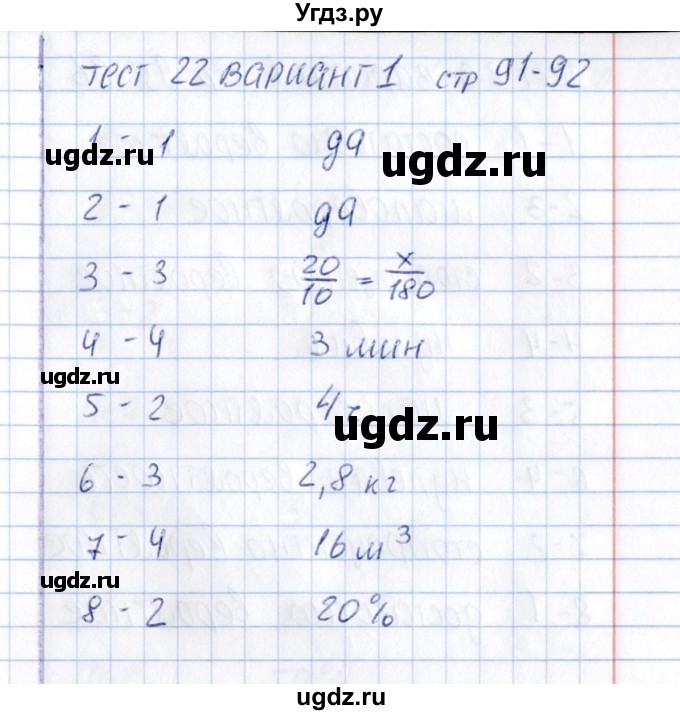 Угдз.ру
тест 22 вариант 1 стр 91-92
1 - 1 да
ugdz.ru
ugdz.ru
2 - 1 да
3 - 3 20/10 = x/180
4 - 4 3 мин
ugdz.ru
5 - 2 4
ugdz.ru
6 - 3 2,8 кг
7 - 4 16 м³
ugdz.ru
8 - 2 20%
ugdz.ru